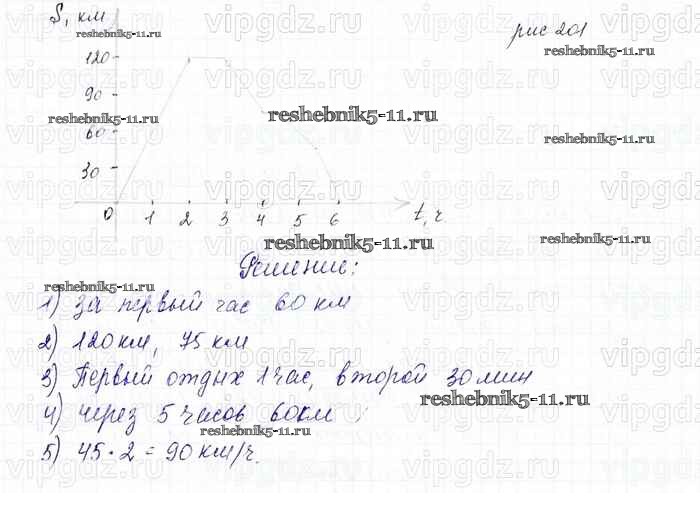 S, км
рис 201
120
90
60
30
0 1 2 3 4 5 6 t, ч
Решение:
1) за первый час 60 км
2) 120 км, 75 км
3) Первый отдых 1 час, второй 30 мин
4) через 5 часов 60 км
5) 45 · 2 = 90 км/ч.
reshebnik5-11.ru
vipgdz.ru